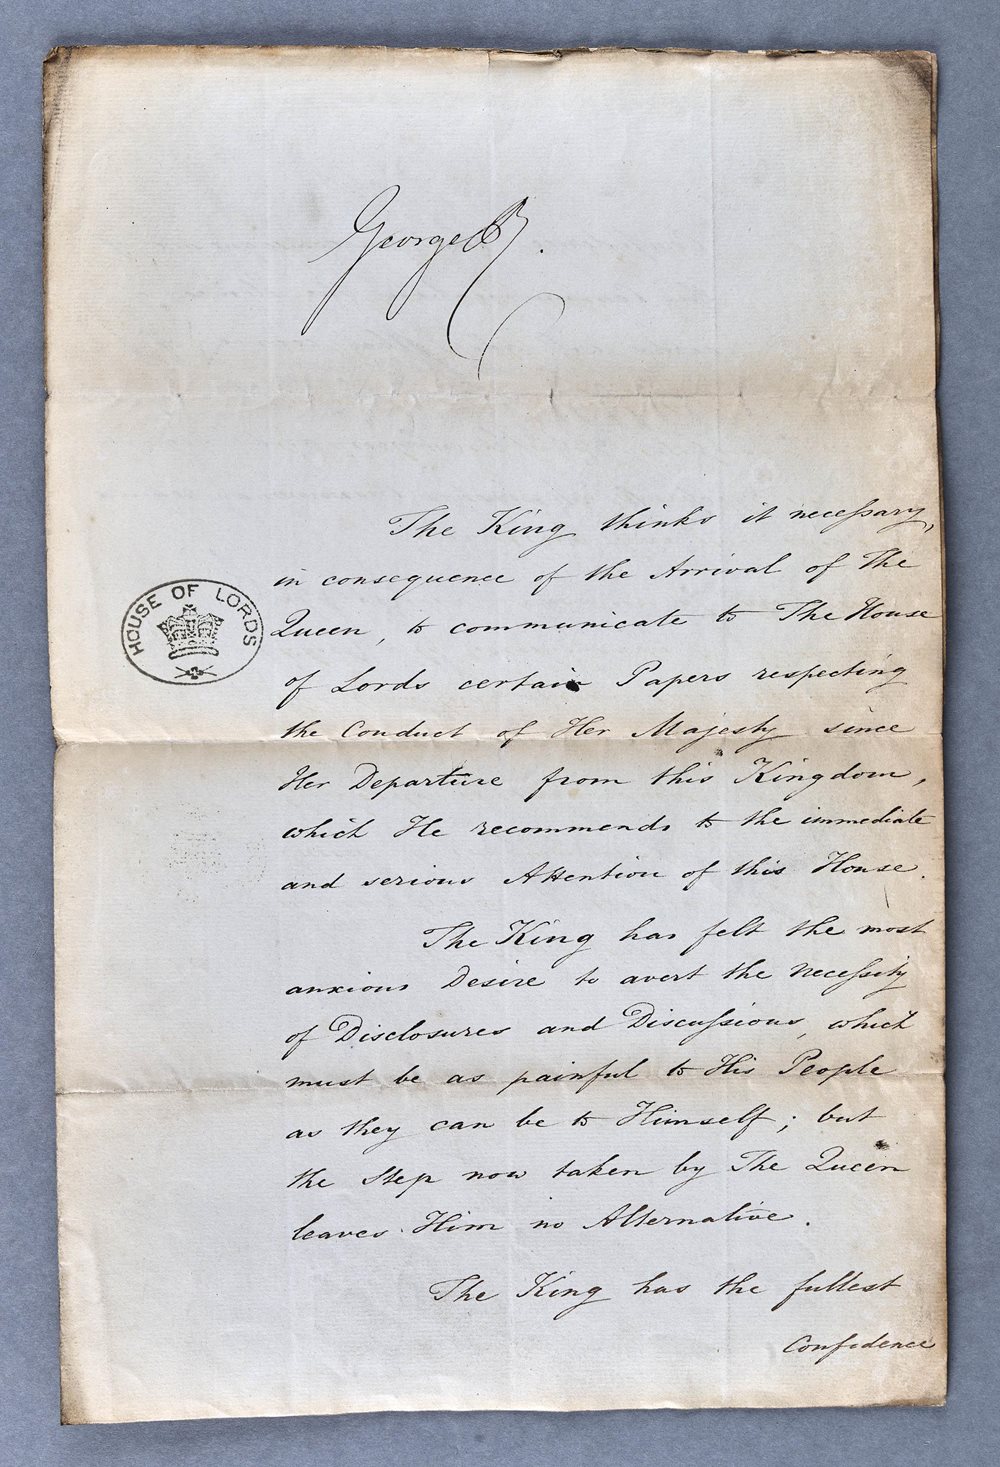 George R.
The King thinks it neceſsary,
in consequence of the Arrival of The
Queen, to communicate to The House
of Lords certain Papers respecting
the Conduct of Her Majesty since
Her Departure from this Kingdom,
which He recommends to the immediate
and serious Attention of this House.
The King has felt the most
anxious Desire to avert the Neceſsity
of Disclosures and Discuſsions, which
must be as painful to His People
as they can be to Himself; but
the Step now taken by The Queen
leaves Him no Alternative.
The King has the fullest
Confidence
HOUSE OF LORDS